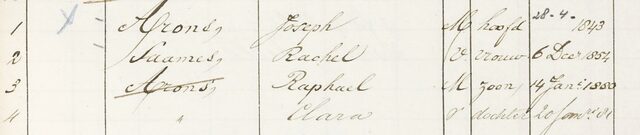 1 Arons, Joseph M hoofd 28-4- 1843
2 Saames, Rachel V vrouw 6 Decr 1854
3 Arons, Raphael M zoon, 14 Jani 1880
4 " Clara v dochter 20 Janri 81